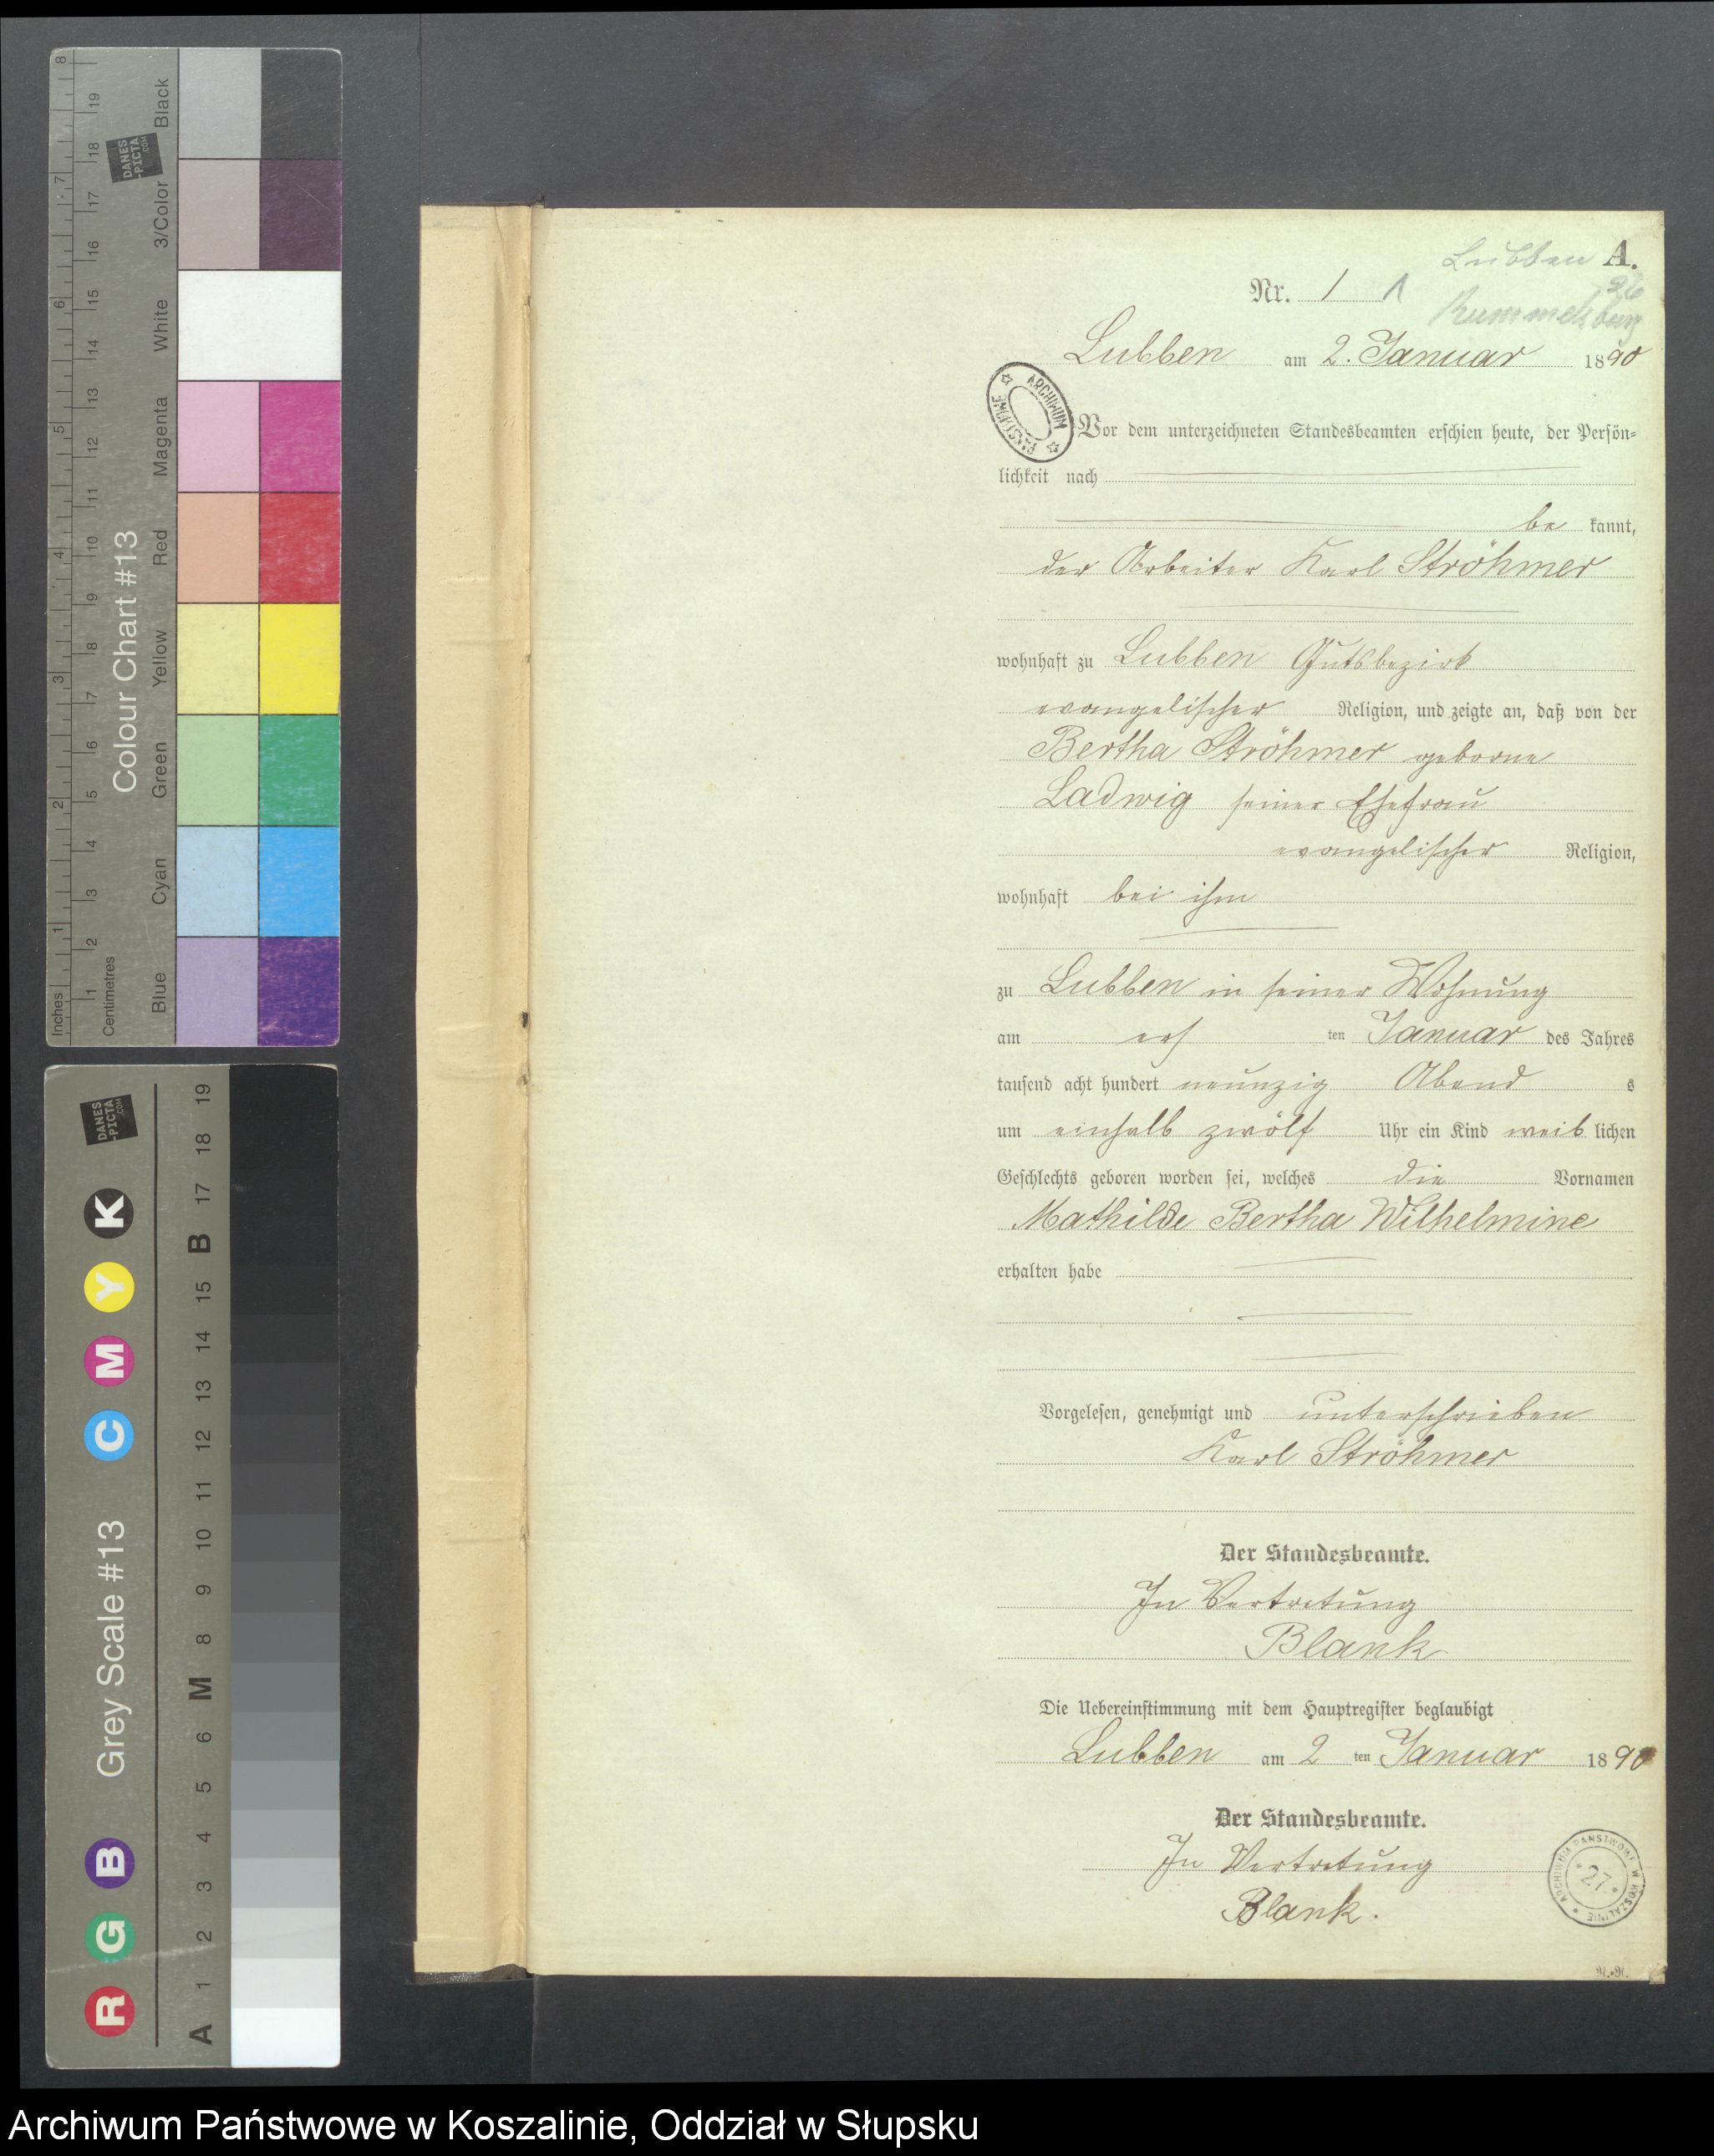 Lubben A.
Nr. 1 1
Rummelsburg
Lubben am 2. Januar 1890
ARCHIWUM PAŃSTWOWE
Vor dem unterzeichneten Standesbeamten erschien heute, der Persön-
lichkeit nach
be kannt,
der Arbeiter Karl Ströhmer
wohnhaft zu Lubben Gutsbezirk
evangelischer Religion, und zeigte an, daß von der
Bertha Ströhmer geborne
Ladwig seiner Ehefrau
evangelischer Religion,
wohnhaft bei ihm
zu Lubben in seiner Wohnung
am ers ten Januar des Jahres
tausend acht hundert neunzig Abend s
um einhalb zwölf Uhr ein Kind weib lichen
Geschlechts geboren worden sei, welches die Vornamen
Mathilde Bertha Wilhelmine
erhalten habe
Vorgelesen, genehmigt und unterschrieben
Karl Ströhmer
Der Standesbeamte.
In Vertretung
Blank
Die Uebereinstimmung mit dem Hauptregister beglaubigt
Lubben am 2 ten Januar 1890
Der Standesbeamte.
In Vertretung
Blank.
ARCHIWUM PAŃSTWOWE W KOSZALINIE
27
Colour Chart #13
Black
3/Color
White
Magenta
Red
Yellow
Green
Cyan
Blue
Inches 1 2 3 4 5 6 7 8
Centimetres 1 2 3 4 5 6 7 8 9 10 11 12 13 14 15 16 17 18 19
DANES
-PICTA
.COM
Grey Scale #13
R G B C M Y K
A 1 2 3 4 5 6 M 8 9 10 11 12 13 14 15 B 17 18 19
DANES
-PICTA
.COM
Archiwum Państwowe w Koszalinie, Oddział w Słupsku